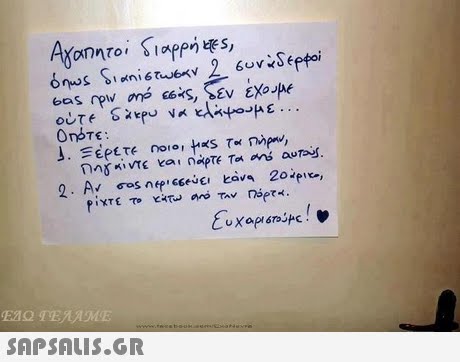 Αγαπητοί διαρρήκτες,
όπως διαπιστωσαν 2 συνάδερφοι
σας πριν από εσάς, δεν έχουμε
ούτε δάκρυ να κλάψουμε...
Οπότε:
1. Ξέρετε ποιοι μας τα πήραν,
πηγαίντε και πάρτε τα από αυτούς.
2. Αν σας περισσεύει κάνα 20άρικο,
ρίχτε το κάτω από την πόρτα.
Ευχαριστούμε! ♥
ΕΔΩ ΓΕΛΑΜΕ
SAPSALIS.GR